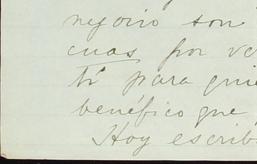 negocio son
cuas por va
tí para quie
benéfico que
Hoy escrib